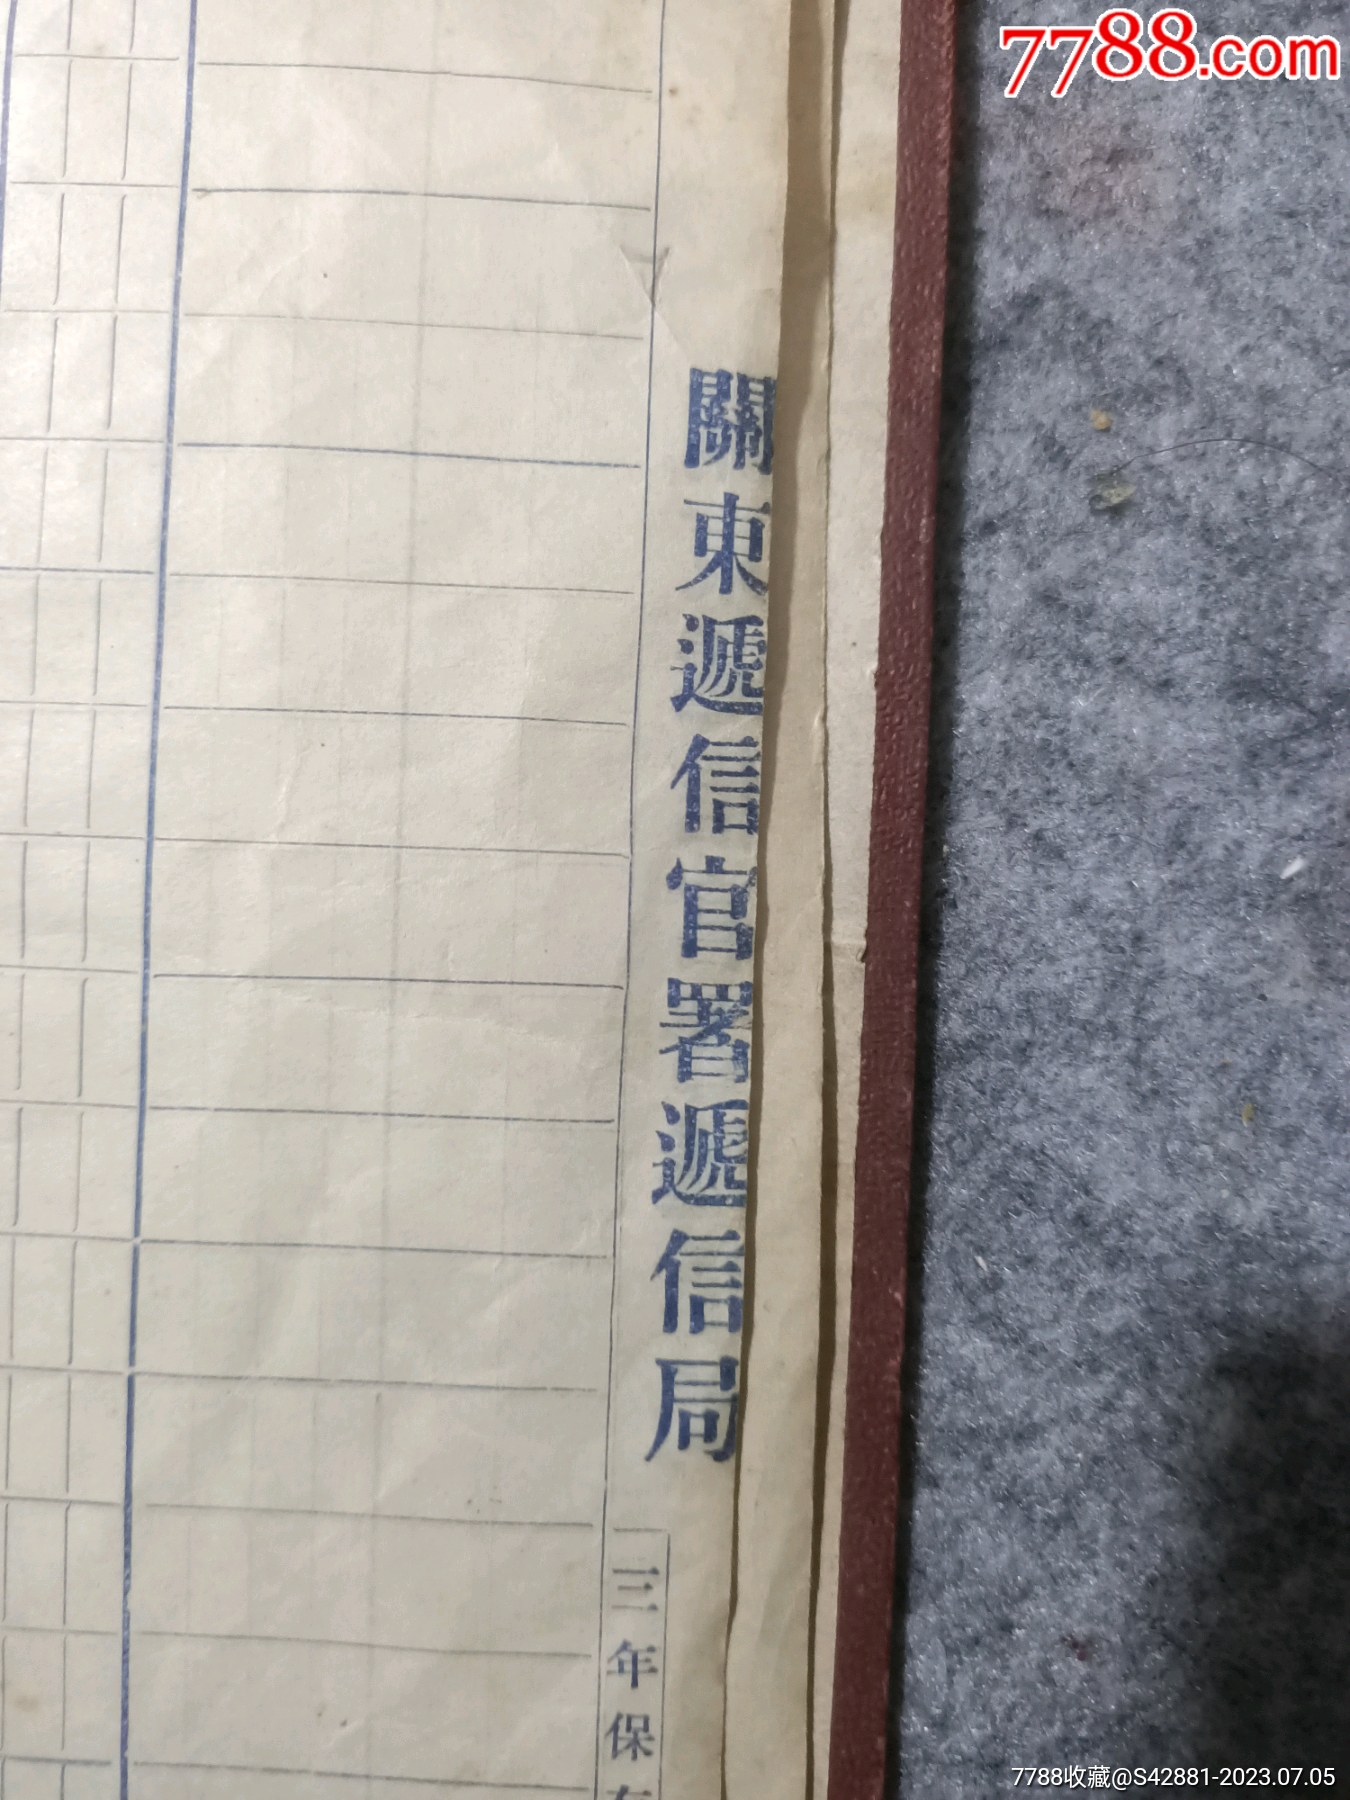 7788.com
關東遞信官署遞信局
三年保
7788收藏@S42881-2023.07.05